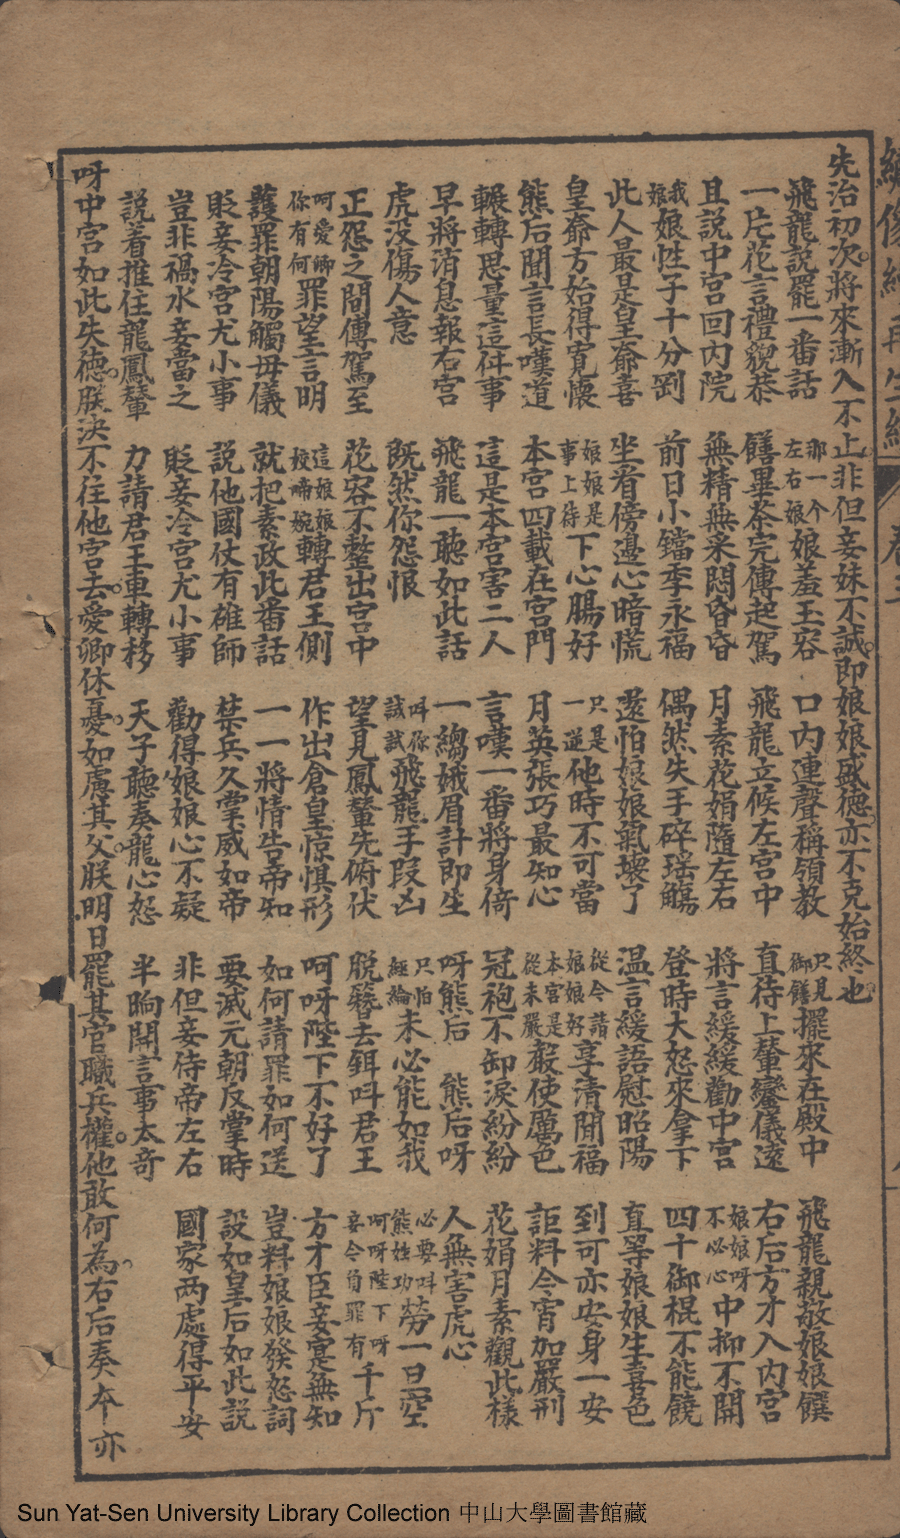 繡像續再生緣 卷三
先治初次將來漸入不止非但妾妹不誠即娘娘盛德亦不克始終也
飛龍說罷一番話 那一今左右娘娘羞玉容 口內連聲稱領教 只見御饍擺來在殿中 飛龍親敬娘娘饌
一片花言禮貌恭 饍畢茶完傳起駕 飛龍立候左宮中 直待上輦鑾儀遠 右后方才入內宮
且說中宮回內院 無精無采悶昏昏 月素花娟隨左右 將言緩緩勸中宮 娘娘呀不必心中抑不開
我娘娘性子十分剛 前日小鐺李永福 偶然失手碎瑤觴 登時大怒來拿下 四十御棍不能饒
此人最是皇爺喜 坐看傍邊心暗慌 還怕娘娘氣壞了 温言緩語慰昭陽 直等娘娘生喜色
皇爺方始得寬懷 娘娘是事上待下心腸好 只是一逆他時不可當 從今請娘娘好享清閒福 到可亦安身一安
熊后聞言長嘆道 本宮四載在宮門 月英張巧最知心 本宮是從未嚴嚴使厲色 詎料今宵加嚴刑
輾轉思量這件事 這是本宮害二人 言嘆一番將身倚 冠袍不卸淚紛紛 花娟月素觀此樣
早將消息報右宮 飛龍一聽如此話 一縐娥眉計即生 呀熊后 熊后呀 人無害虎心
虎沒傷人意 既然你怨恨 呌你試試飛龍手段凶 只怕經綸未必能如我 必要呌熊姓功勞一旦空
正怨之間傳駕至 花容不整出宮中 望見鳳輦先俯伏 脫簪去鉺呌君王 呵呀陛下呀妾今負罪有千斤
呵愛卿你有何罪望言明 這娘娘按啼婉轉君王側 作出倉皇惊惧形 呵呀陛下不好了 方才臣妾寔無知
護罪朝陽觸毋儀 就把素政此番話 一一將情告帝知 如何請罪如何送 豈料娘娘發怒詞
貶妾冷宮尤小事 說他國仗有雄師 禁兵久掌威如帝 要滅元朝反掌時 設如皇后如此說
豈非禍水妾當之 貶妾冷宮尤小事 勸得娘娘心不疑 非但妾侍帝左右 國家两處得平安
說着推住龍鳳輦 力請君王車轉移 天子聽奏龍心怒 半晌開言事太奇
呀中宮如此失德朕決不住他宮去愛卿休憂如慮其父朕明日罷其官職兵權他敢何為右后奏本亦
Sun Yat-Sen University Library Collection 中山大學圖書館藏